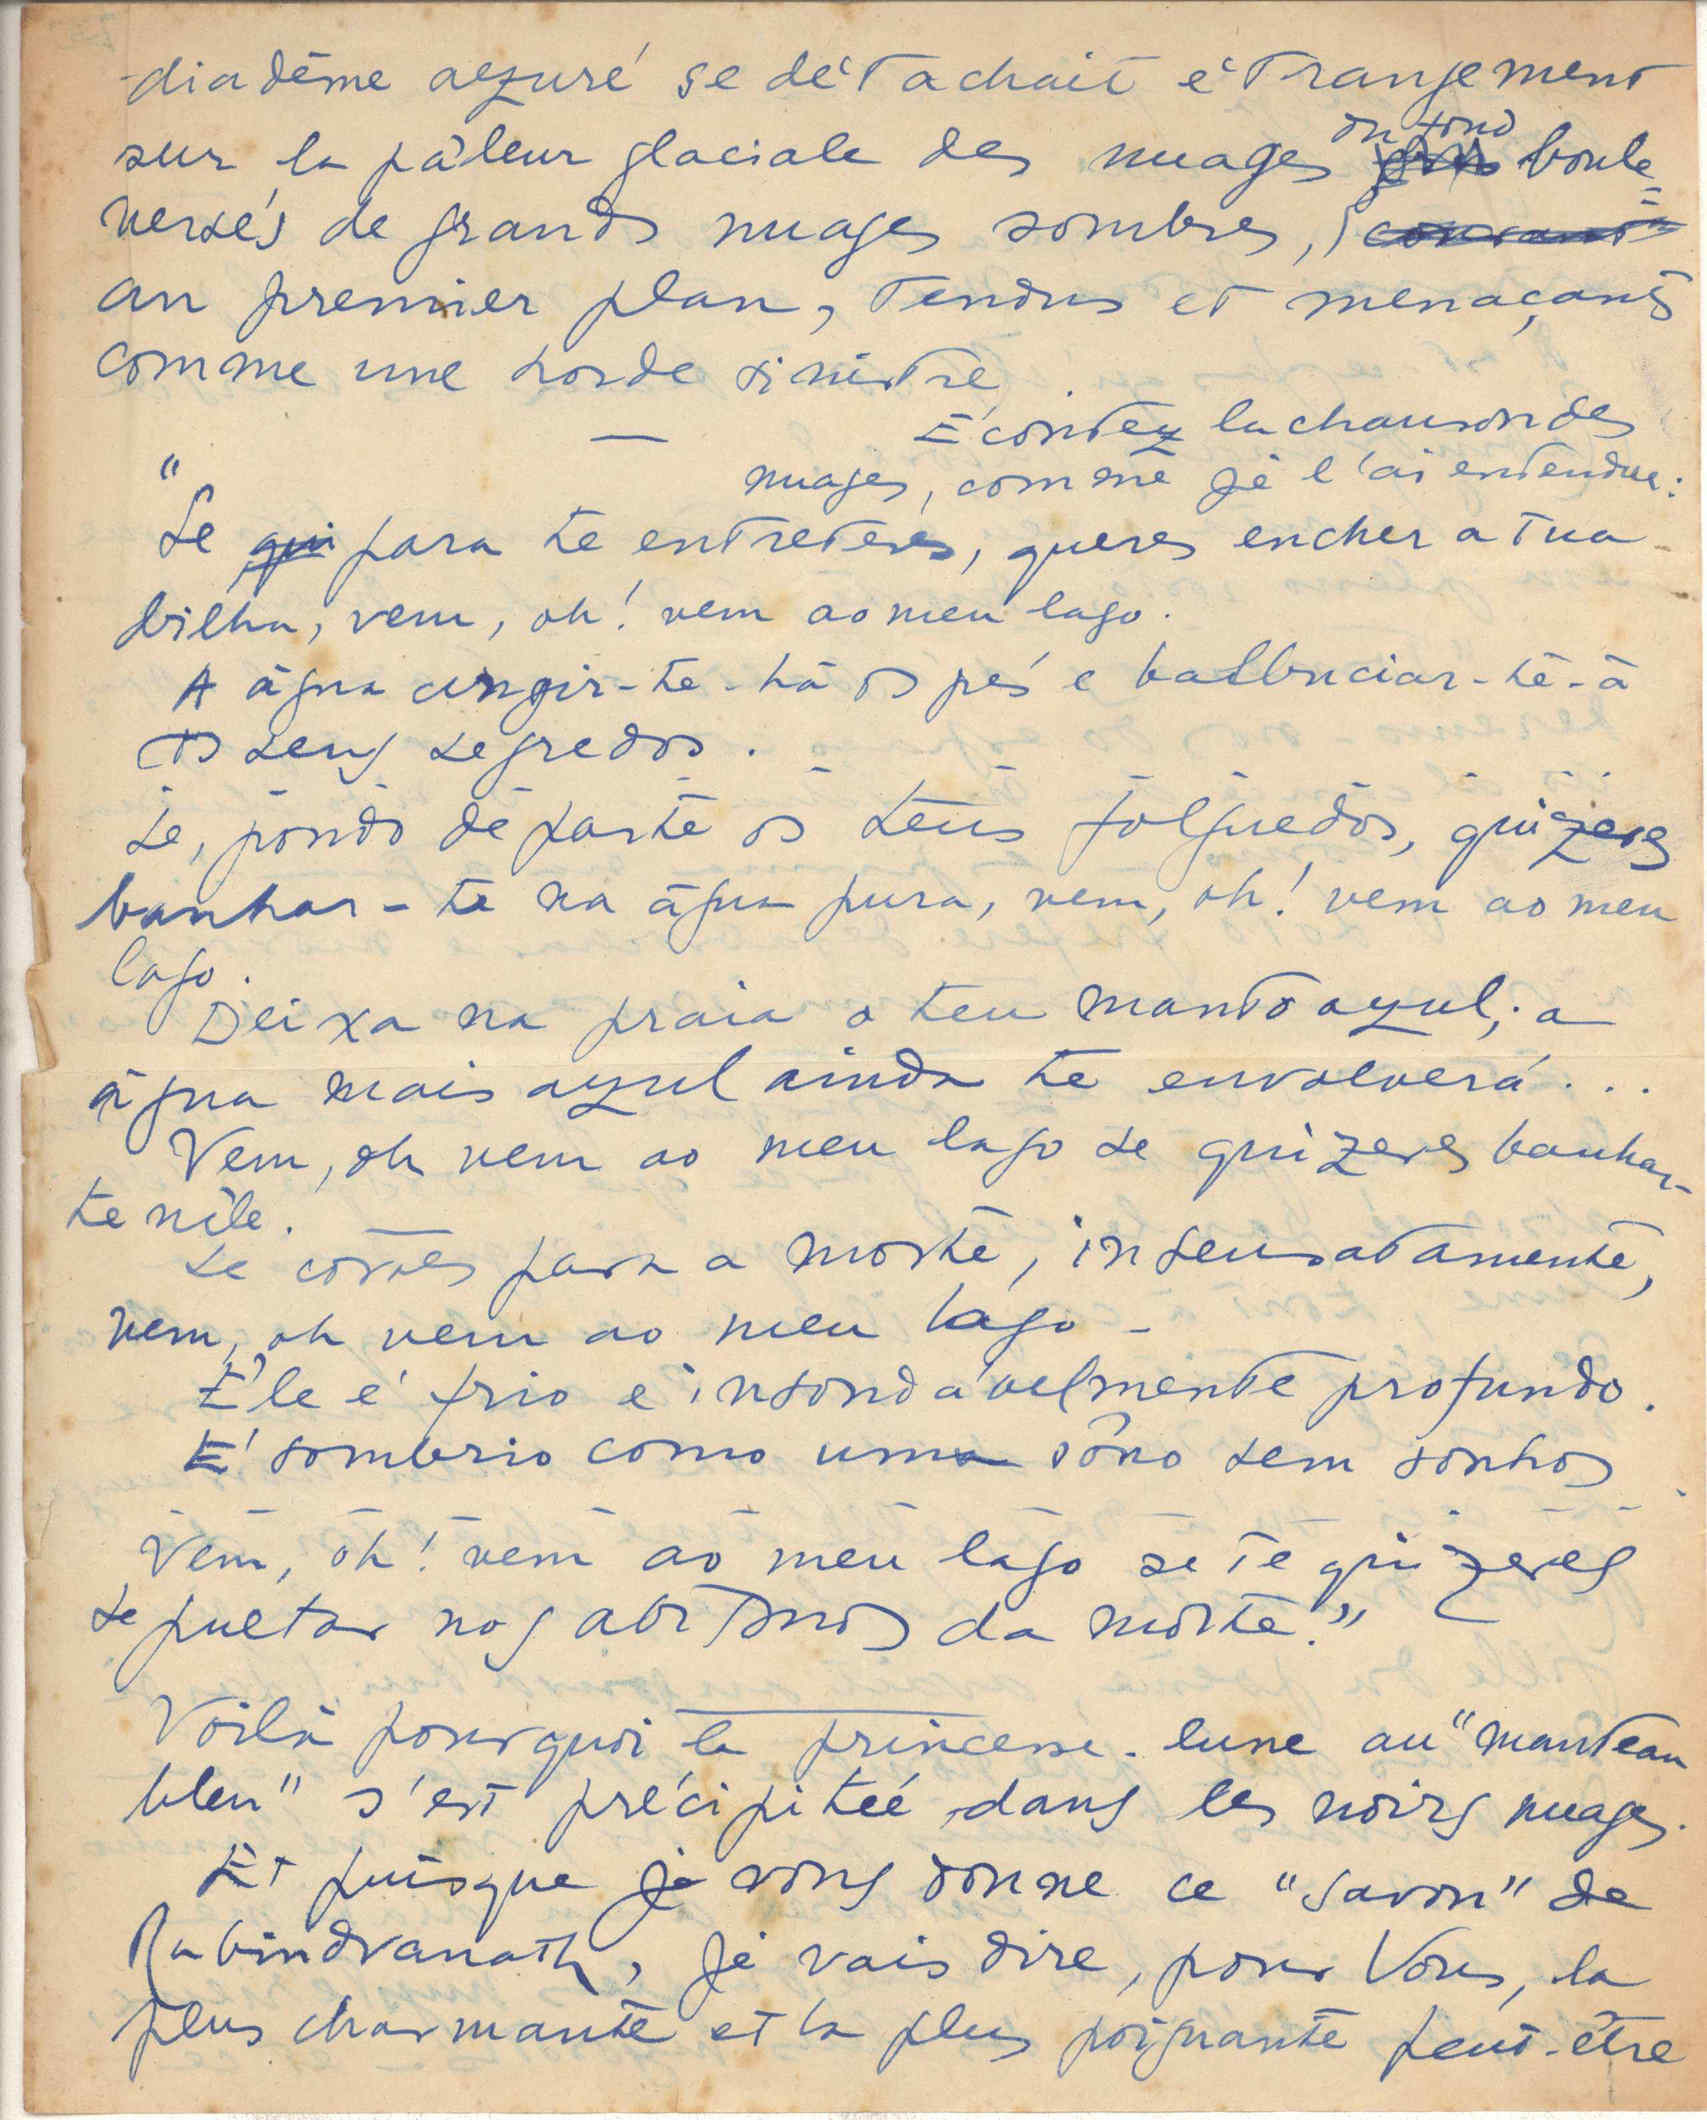 diadème azuré se détachait étrangement
sur la pâleur glaciale des nuages du fond boule-
versés de grands nuages sombres, courant
au premier plan, tendus et menaçants
comme une horde sinistre.
Ecoutez la chanson des
nuages, comme je l'ai entendue:
"Se qui para te entreteres, queres encher a tua
bilha, vem, oh! vem ao meu lago.
A água cingir-te-há os pés e balbuciar-te-á
os seus segredos.
Se, pondo de parte os teus folguedos, quizeres
banhar-te na água pura, vem, oh! vem ao meu
lago.
Deixa na praia o teu manto azul; a
água mais azul ainda te envolverá...
Vem, oh vem ao meu lago se quizeres banhar-
te nêle.
Se corres para a morte, insensatamente,
vem, oh vem ao meu lago -
Êle é frio e insondávelmente profundo.
E' sombrio como um sôno sem sonhos
Vem, oh! vem ao meu lago se te quizeres
sepultar nos abismos da morte."
Voilà pourquoi la princesse-lune au "manteau
bleu" s'est précipitée dans les noirs nuages.
Et puisque je vous donne ce "savon" de
Rabindranath, je vais dire, pour Vous, la
plus charmante et la plus poignante peut-être